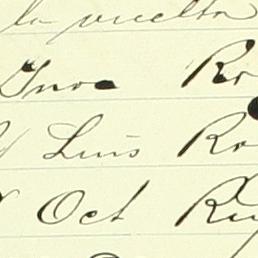 la vuelta
Ro
Luis Ro
Oct Ruy